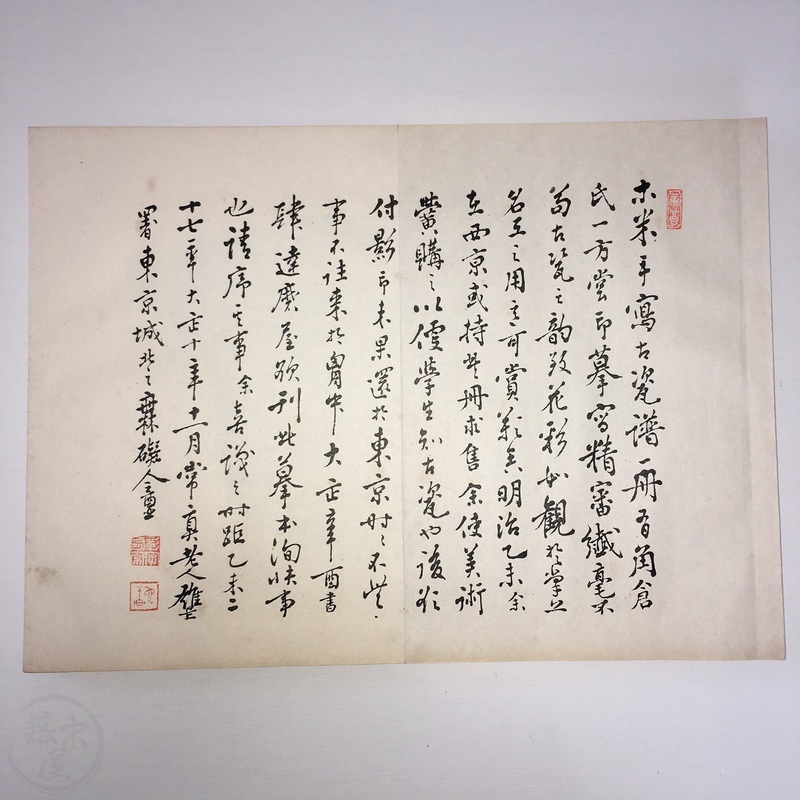 木米手寫古瓷譜一冊有角倉
氏一方嘗印摹寫精審纖毫不
苟古瓷之韵致花彩如觀於掌上
名工之用意可賞歎矣明治乙未余
在西京或持此冊求售余使美術
黌購之以便學生知古瓷也後欲
付影印未果還於東京時時不
事不往來於胷中大正辛酉書
肆達磨屋欲刊此摹本洵快事
也請序其事余喜識之時距乙未二
十七年大正十年十一月常真老人
署東京城北之無礙人